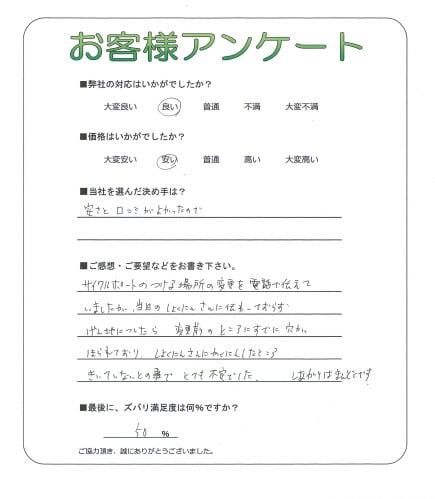 お客様アンケート
■弊社の対応はいかがでしたか?
大変良い 良い 普通 不満 大変不満
■価格はいかがでしたか?
大変安い 安い 普通 高い 大変高い
■当社を選んだ決め手は?
安さと 口コミがよかったので
■ご感想・ご要望などをお書き下さい。
サイクルポートのつける場所の変更を電話で伝えて
いましたが、当日のしょくにんさんに伝わっておらず
げんばについたら 変更前のところにすでに穴が
ほられており、しょくにんさんにかくにんしたところ
きいていないとの事で とても不安でした。 しあがりはまんぞくです
■最後に、ズバリ満足度は何%ですか?
50 %
ご協力頂き、誠にありがとうございました。